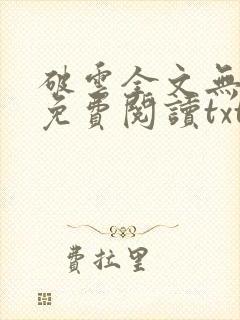 破雲全文無
免費閱讀txt
費拉里